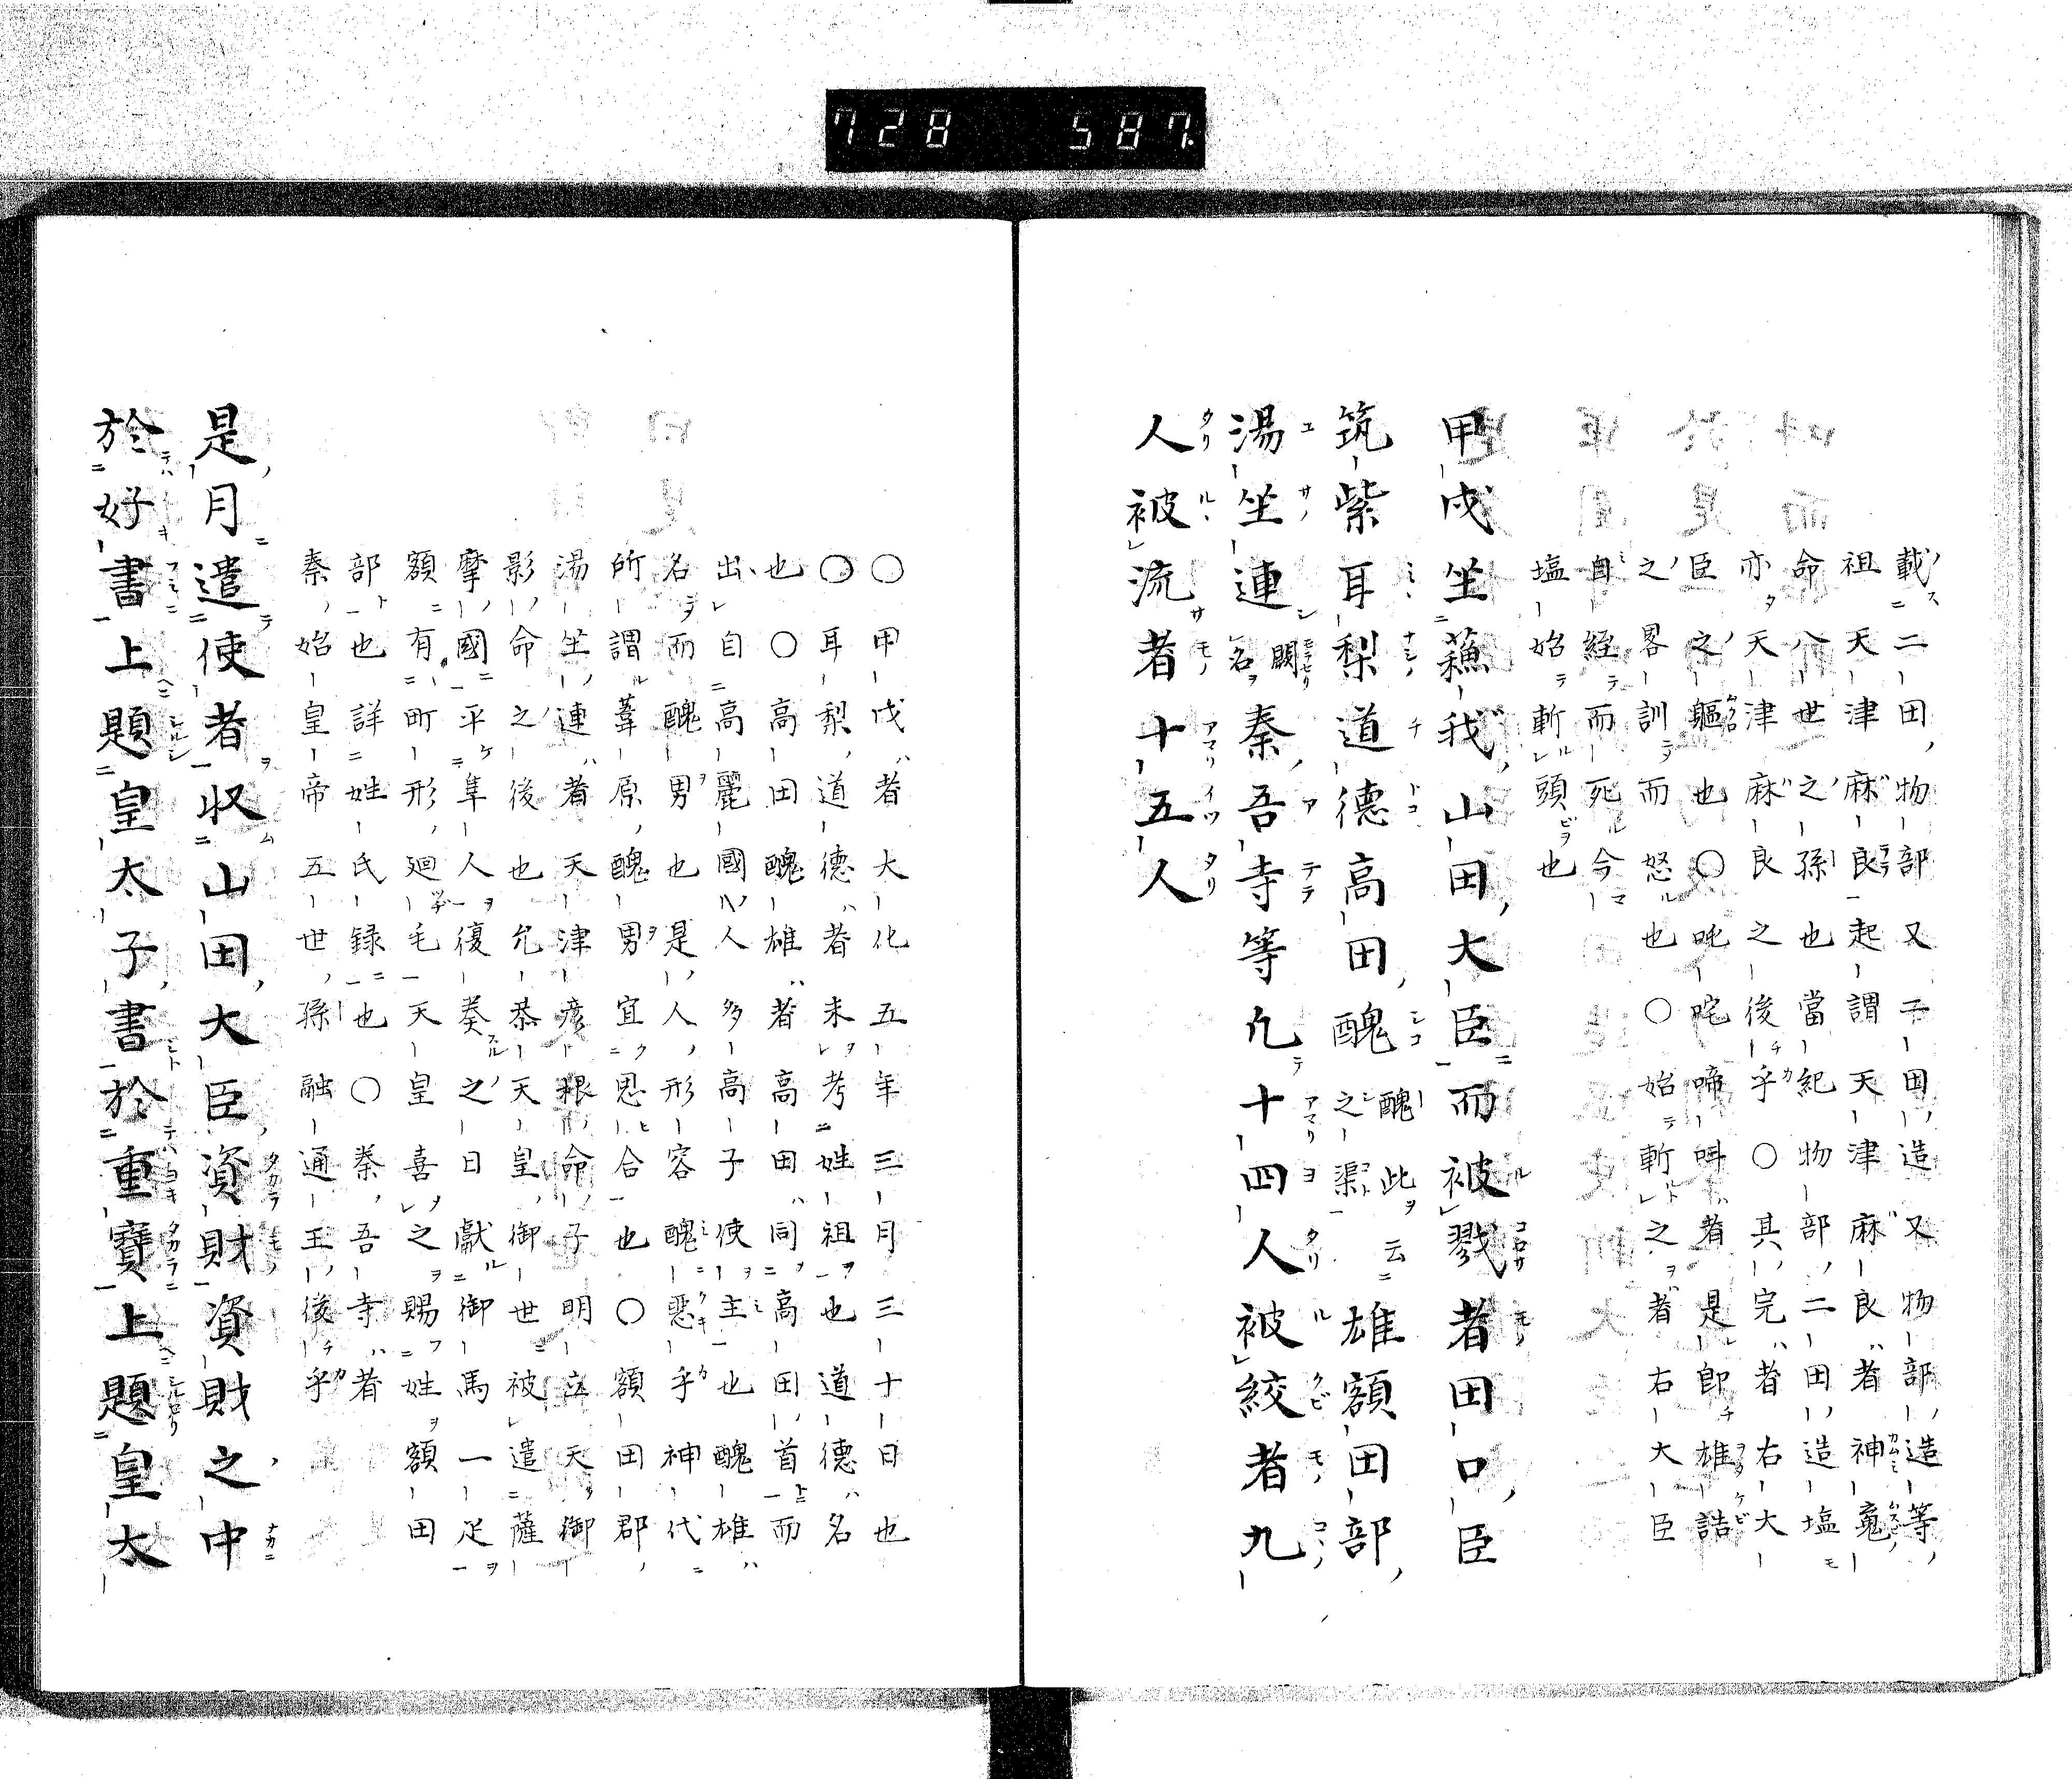 728 587.
載二田物部又二田造又物部造等
祖天津麻良起謂天津麻良者神寬
命八世之孫也當紀物部二田造塩
亦天津麻良之後乎○其完者右大
臣之軀也○咤咤啼叫者是卽雄誥
之畧訓而怒也○始斬之者右大臣
自經而死今
塩始斬頭也
甲戌坐蘓我山田大臣而被戮者田口臣
筑紫耳梨道德高田醜醜此云之渠雄額田部
湯坐連闕名秦吾寺等凢十四人被絞者九
人被流者十五人
○甲戌者大化五年三月三十日也
○耳梨道德者未考姓祖也道德名
也○高田醜雄者高田同高田首而
出自高麗國人多高子使主也醜雄
名而醜男也是人形容醜惡乎神代
所謂葦原醜男宜思合也○額田郡
湯坐連者天津彥根命子明立天御
影命之後也允恭天皇御世被遣薩
摩國平隼人復奏之日獻御馬一疋
額有町形廻毛天皇喜之賜姓額田
部也詳姓氏録也○秦吾寺者
秦始皇帝五世孫融通王後乎
是月遣使者収山田大臣資財資財之中
於好書上題皇太子書於重寶上題皇太